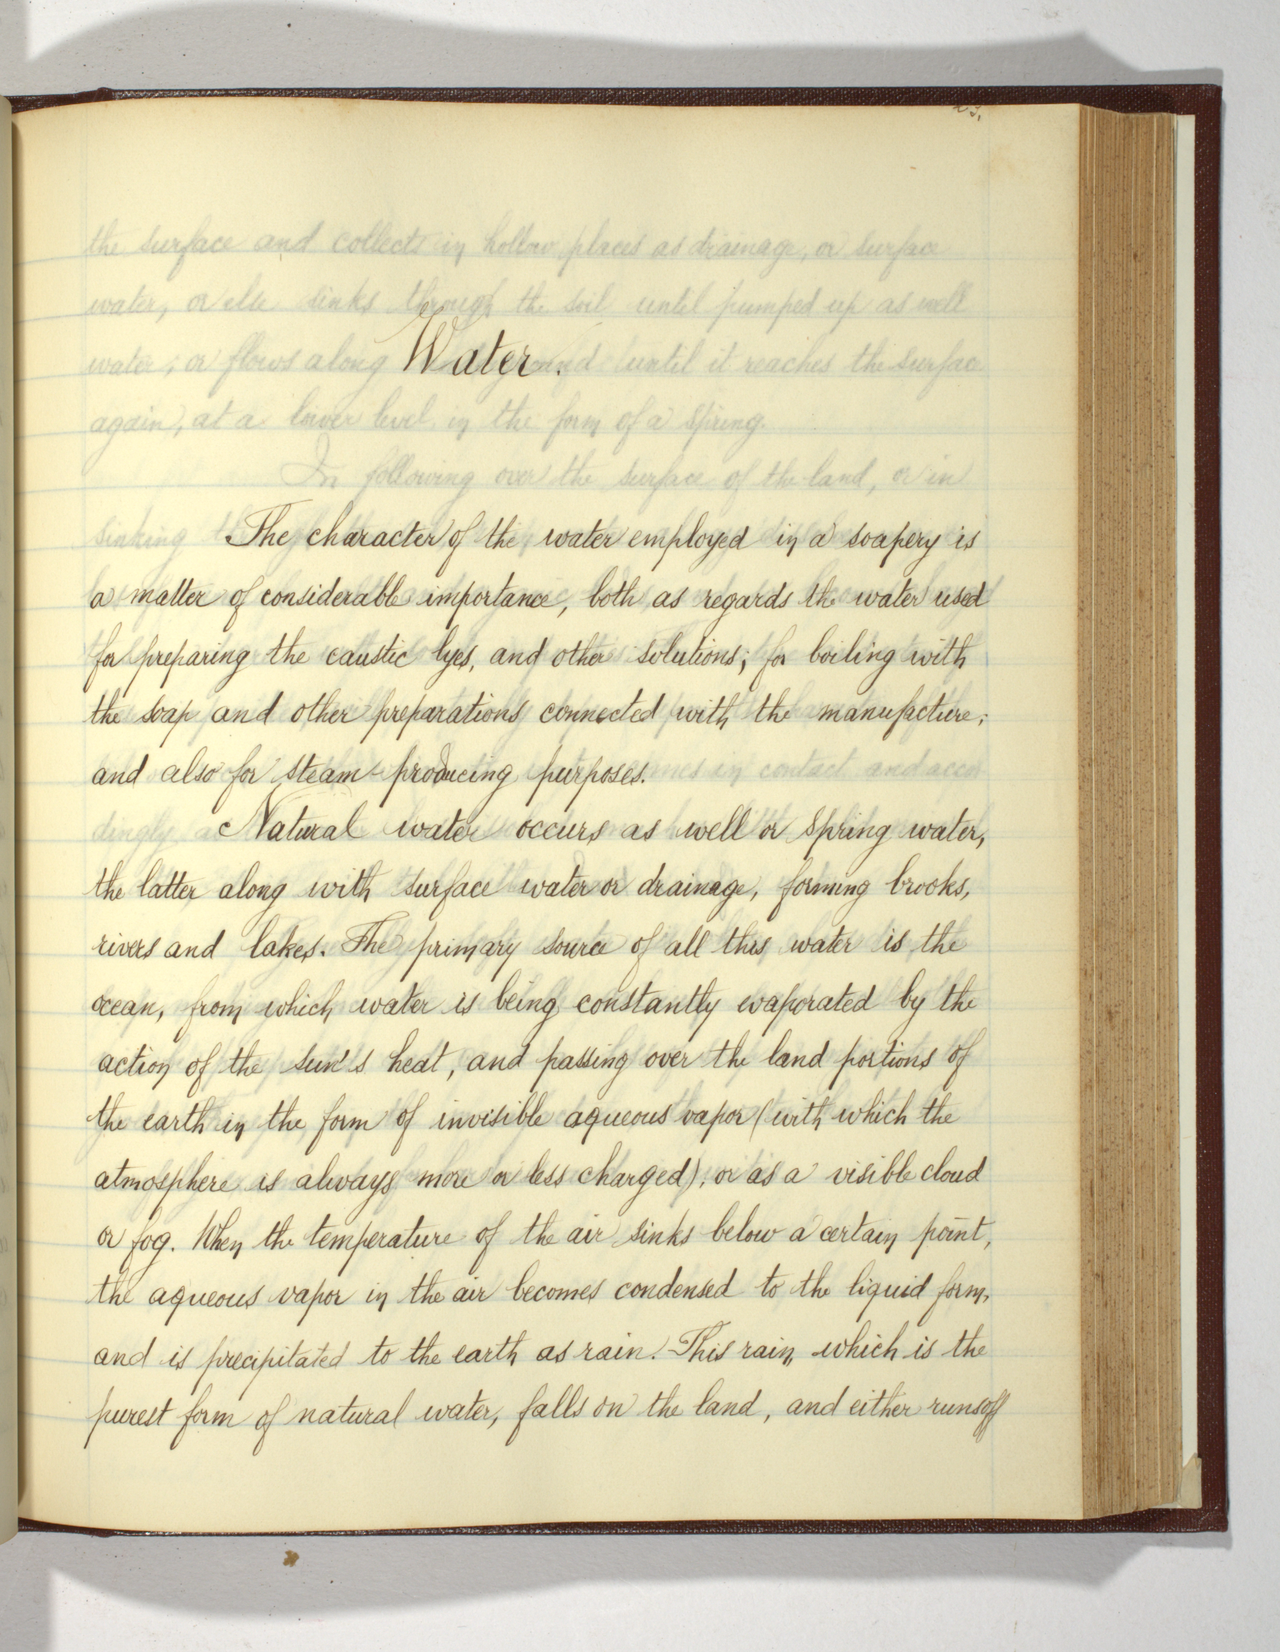 Water.
The character of the water employed in a soapery is
a matter of considerable importance, both as regards the water used
for preparing the caustic lyes, and other solutions; for boiling with
the soap and other preparations connected with the manufacture;
and also for steam-producing purposes.
Natural water occurs as well or spring water,
the latter along with surface water or drainage, forming brooks,
rivers and lakes. The primary source of all this water is the
ocean, from which water is being constantly evaporated by the
action of the sun's heat, and passing over the land portions of
the earth in the form of invisible aqueous vapor (with which the
atmosphere is always more or less charged), or as a visible cloud
or fog. When the temperature of the air sinks below a certain point,
the aqueous vapor in the air becomes condensed to the liquid form,
and is precipitated to the earth as rain. This rain, which is the
purest form of natural water, falls on the land, and either runs off